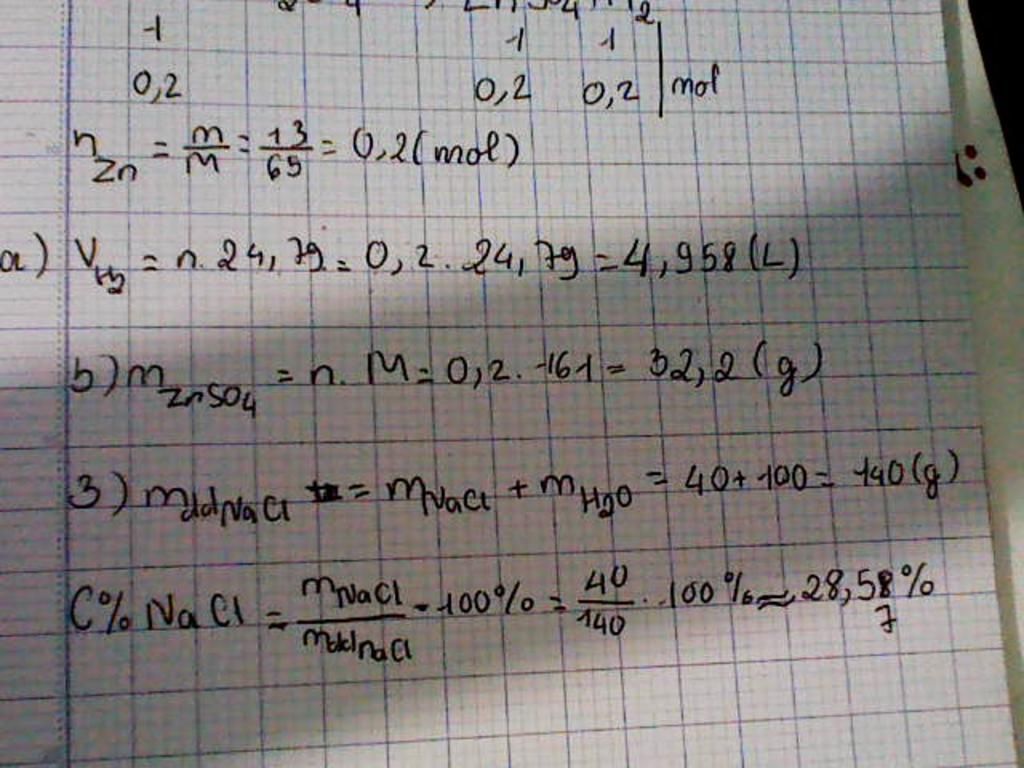 ZnSO4 + H2
1 1 1
0,2 0,2 0,2 mol
nZn = m/M = 13/65 = 0,2 (mol)
a) VH2 = n. 24,79 = 0,2. 24,79 = 4,958 (L)
b) mZnSO4 = n. M = 0,2. 161 = 32,2 (g)
3) mddNaCl = mNaCl + mH2O = 40 + 100 = 140 (g)
C% NaCl = mNaCl/mddNaCl . 100% = 40/140 . 100% ≈ 28,58%
7